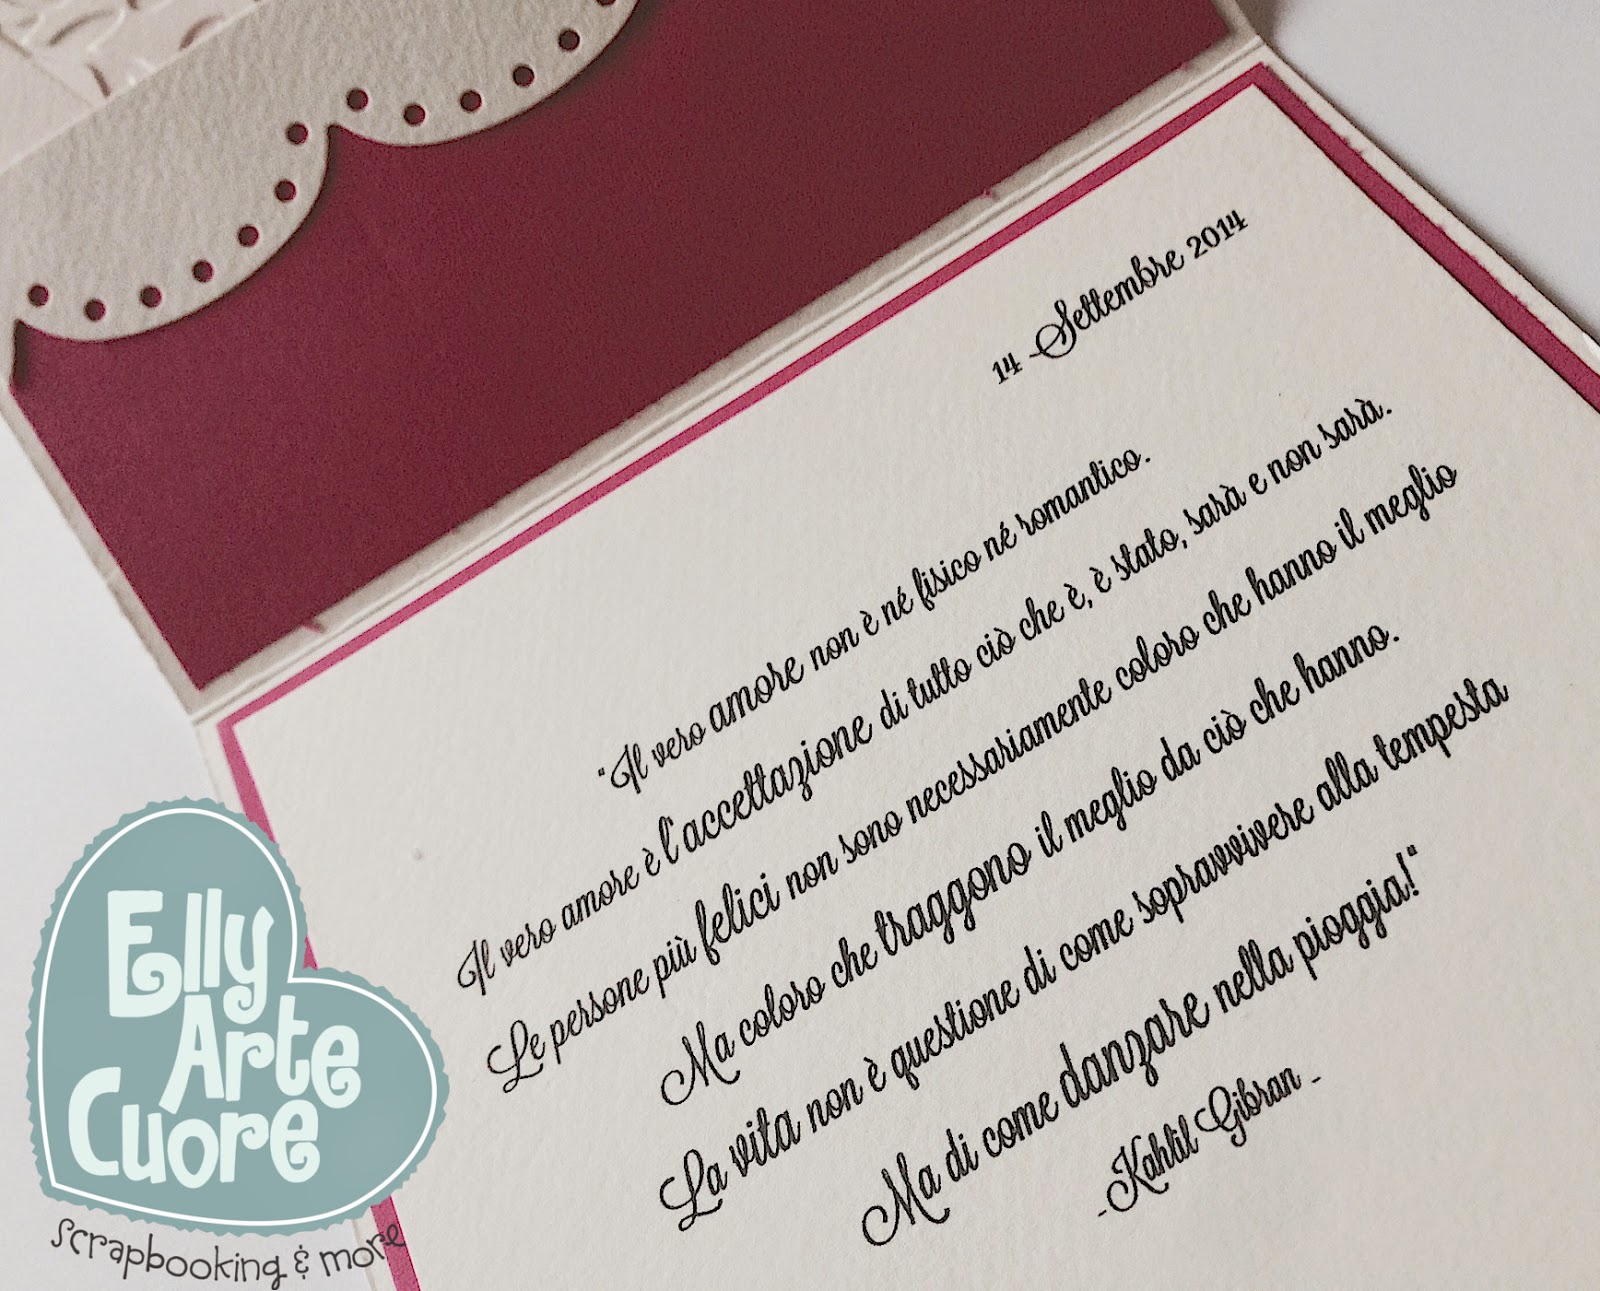 14 Settembre 2014
"Il vero amore non è né fisico né romantico.
Il vero amore è l'accettazione di tutto ciò che è, è stato, sarà e non sarà.
Le persone più felici non sono necessariamente coloro che hanno il meglio
Ma coloro che traggono il meglio da ciò che hanno.
La vita non è questione di come sopravvivere alla tempesta
Ma di come danzare nella pioggia!"
-Kahlil Gibran -
Elly
Arte
Cuore
scrapbooking & more